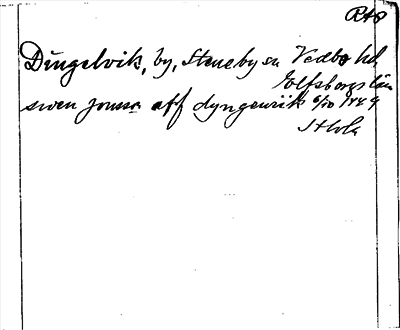 Dingelvik, by, Steneby sn Vedbo hd,
Elfsborgs län
swen jonsson aff dyngewiik 6/10 1489